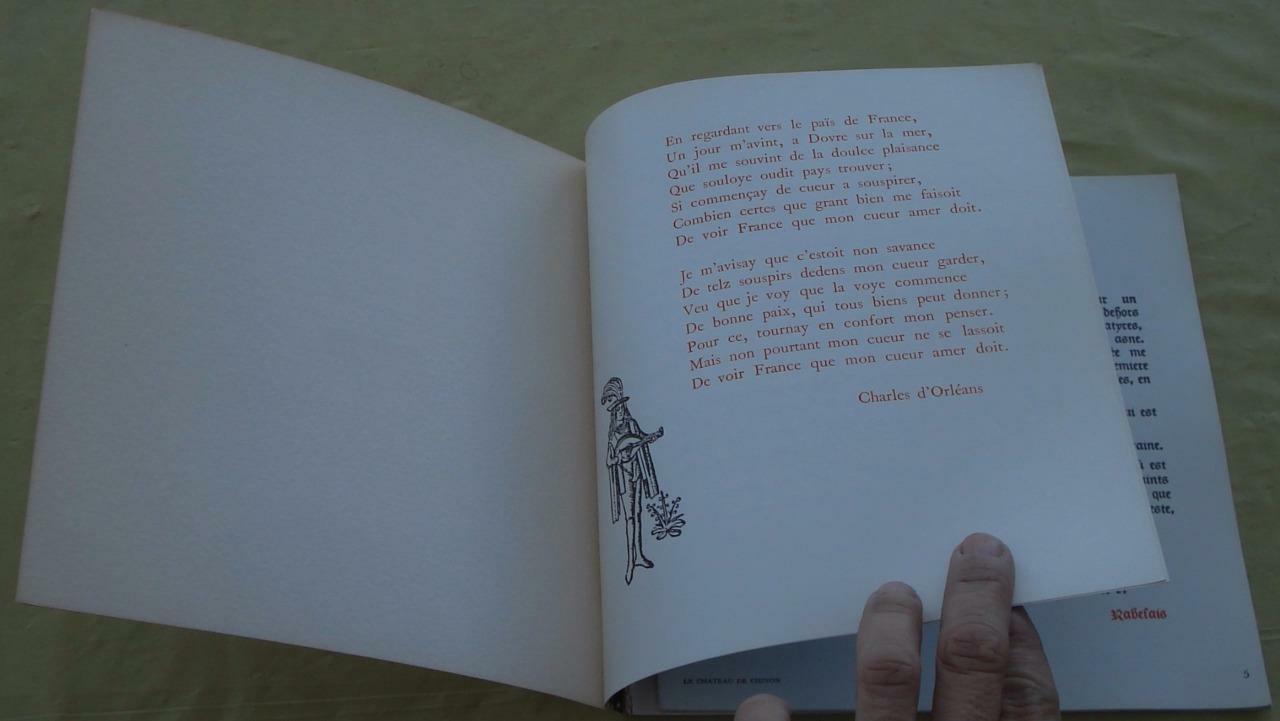 En regardant vers le païs de France,
Un jour m'avint, a Dovre sur la mer,
Qu'il me souvint de la doulce plaisance
Que souloye oudit pays trouver ;
Si commençay de cueur a souspirer,
Combien certes que grant bien me faisoit
De voir France que mon cueur amer doit.
Je m'avisay que c'estoit non savance
De telz souspirs dedens mon cueur garder,
Veu que je voy que la voye commence
De bonne paix, qui tous biens peut donner ;
Pour ce, tournay en confort mon penser.
Mais non pourtant mon cueur ne se lassoit
De voir France que mon cueur amer doit.
Charles d'Orléans
un
dehors
asne.
me
en
est
est
que
Rabelais
LE CHATEAU DE CHINON
5